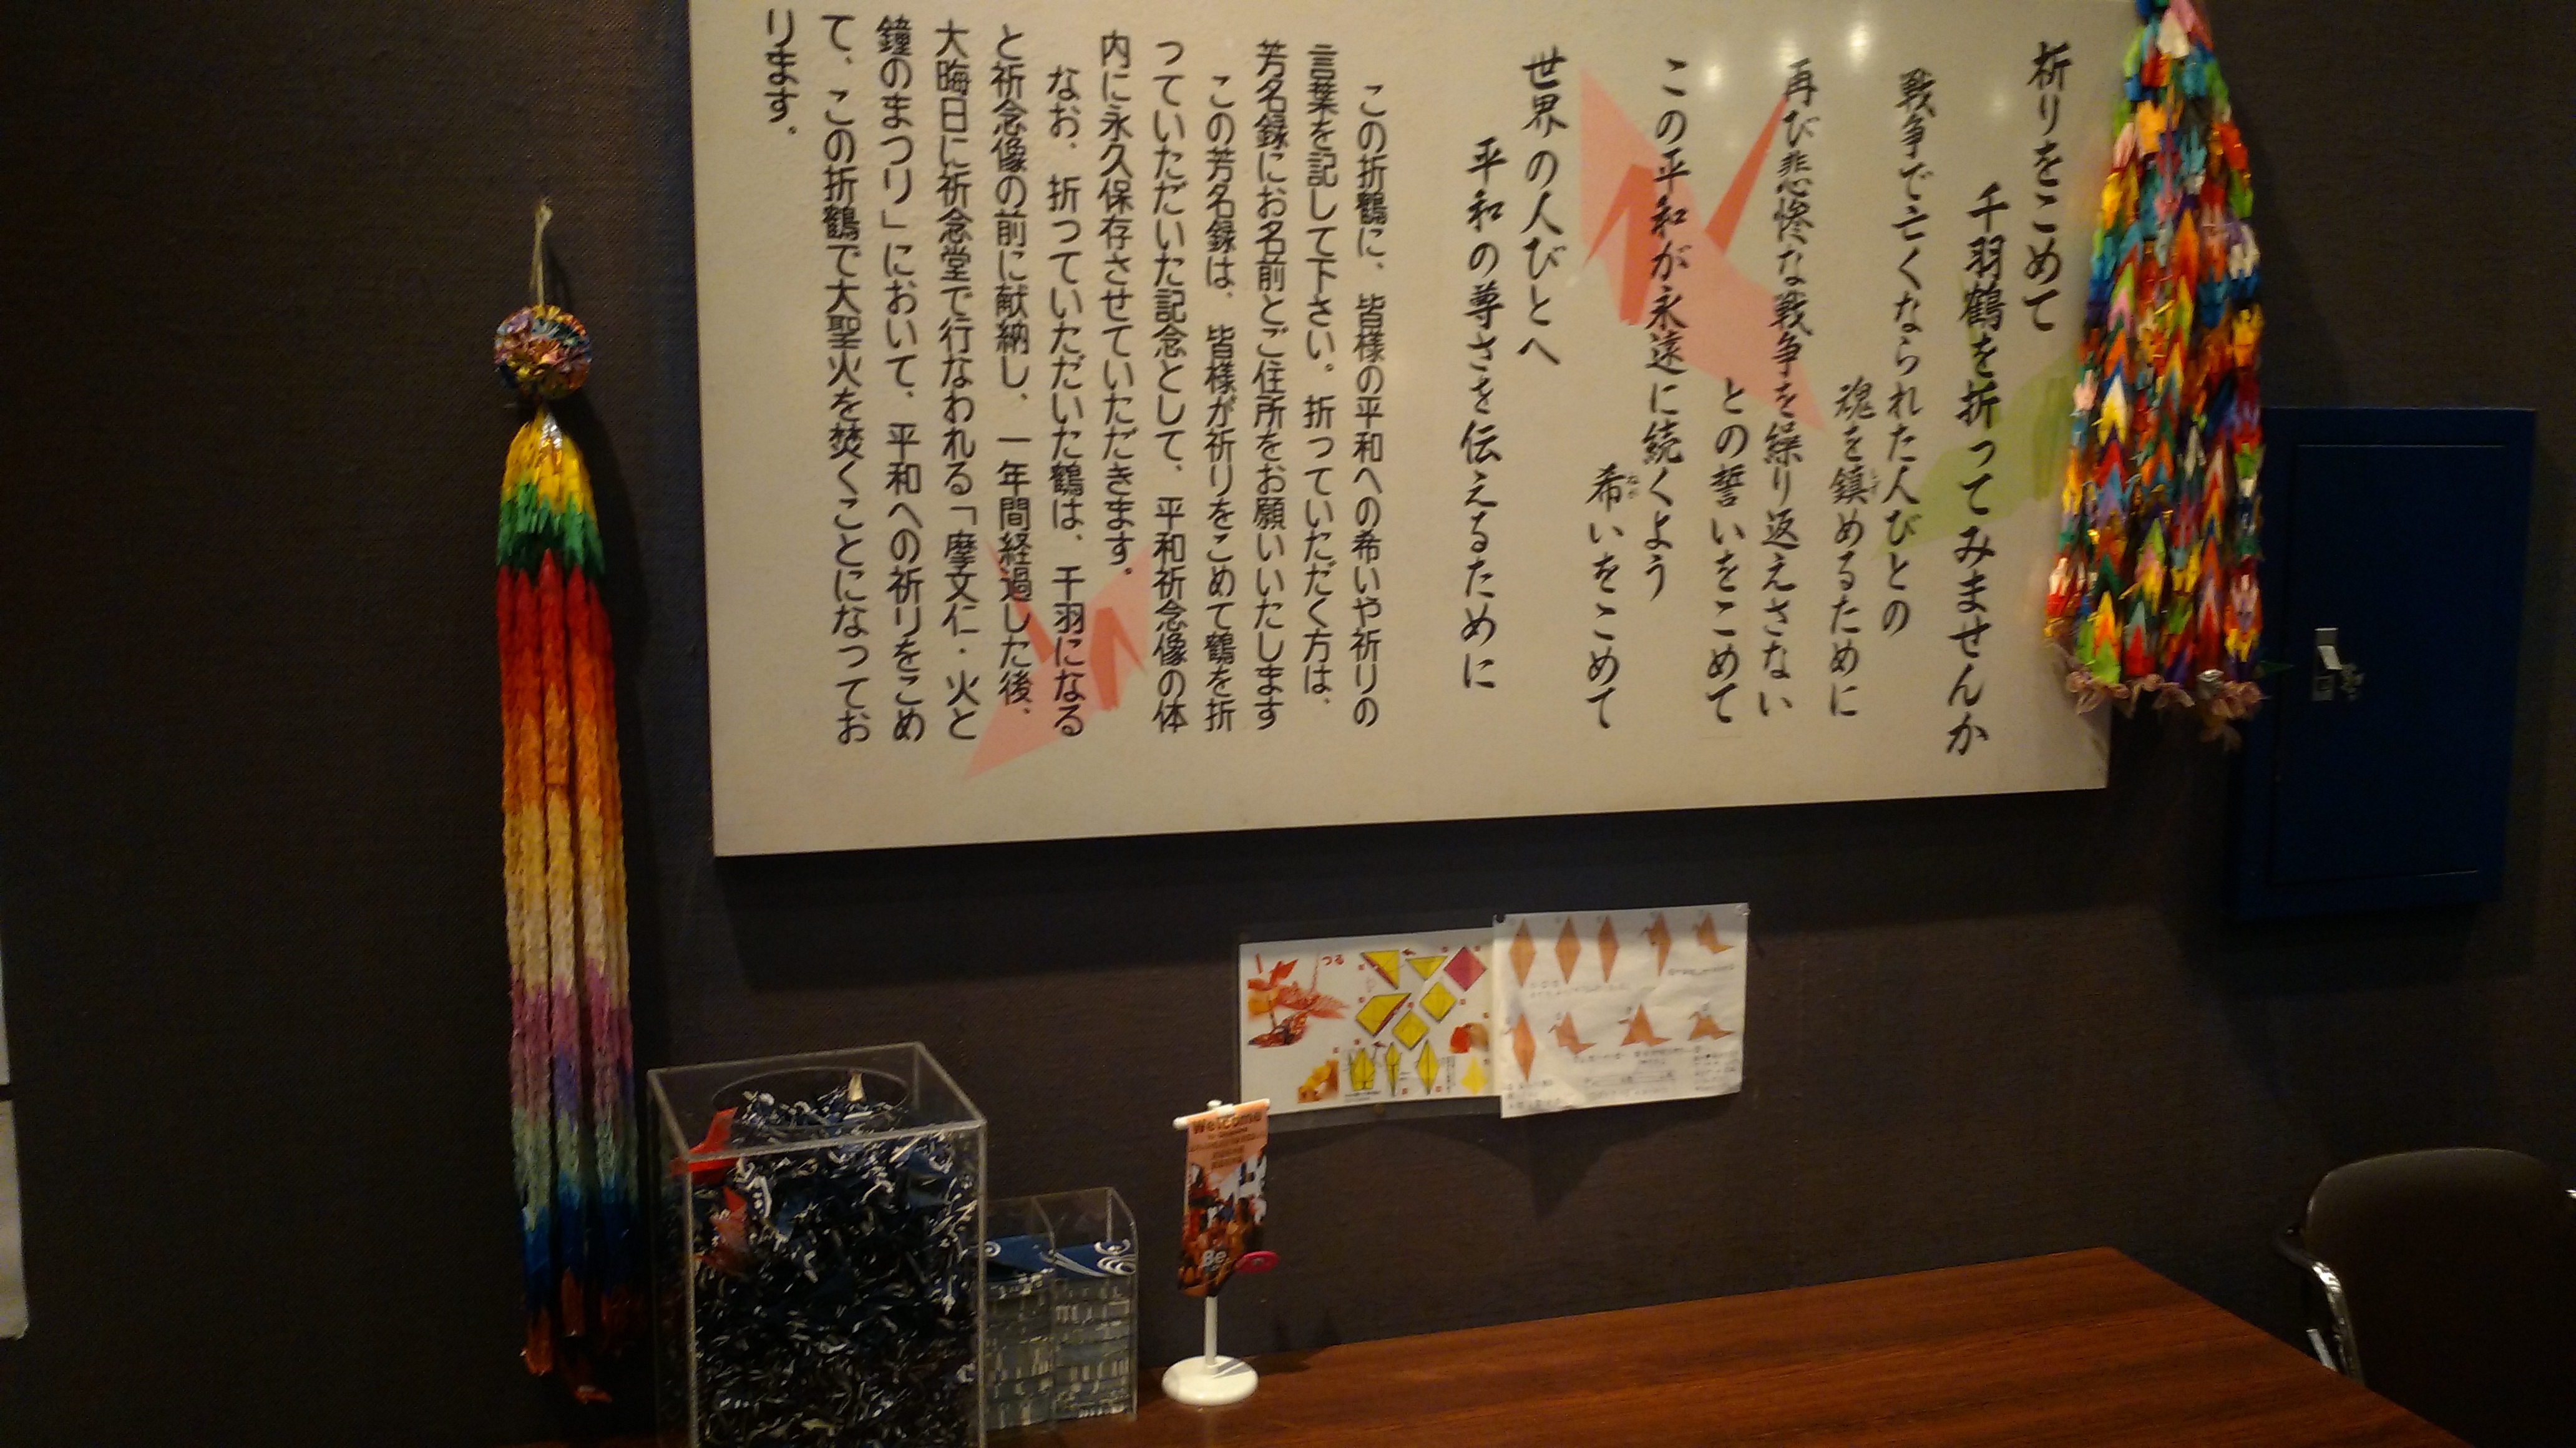 祈りをこめて
千羽鶴を折ってみませんか
戦争で亡くなられた人びとの
魂を鎮めるために
再び悲惨な戦争を繰り返えさない
との誓いをこめて
この平和が永遠に続くよう
希いをこめて
世界の人びとへ
平和の尊ささを伝えるために
この折鶴に、皆様の平和への希いや祈りの
言葉を記して下さい。折っていただく方は、
芳名録にお名前とご住所をお願いいたします
この芳名録は、皆様が祈りをこめて鶴を折
っていただいた記念として、平和祈念像の体
内に永久保存させていただきます。
なお、折っていただいた鶴は、千羽になる
と祈念像の前に献納し、一年間経過した後、
大晦日に祈念堂で行なわれる「摩文仁・火と
鐘のまつり」において、平和への祈りをこめ
て、この折鶴で大聖火を焚くことになってお
ります。
つる
Welcome
Be